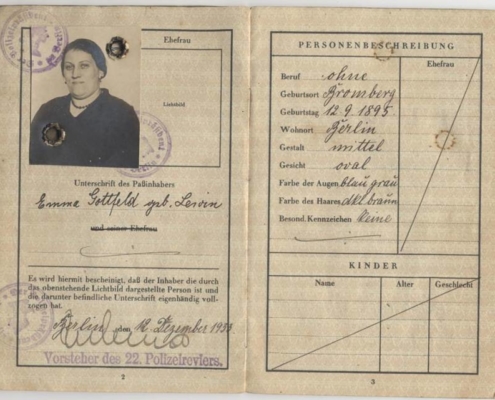 Ehefrau
Lichtbild
Unterschrift des Paßinhabers
Emma Gottfeld geb. Lewin
und seiner Ehefrau
Es wird hiermit bescheinigt, daß der Inhaber die durch
das obenstehende Lichtbild dargestellte Person ist und
die darunter befindliche Unterschrift eigenhändig voll-
zogen hat.
Berlin, den 12. Dezember
Vorsteher des 22. Polizeireviers.
2
PERSONENBESCHREIBUNG
Ehefrau
Beruf ohne
Geburtsort Bromberg
Geburtstag 12.9.1895
Wohnort Berlin
Gestalt mittel
Gesicht oval
Farbe der Augen blau grau
Farbe des Haares dkl. braun
Besond. Kennzeichen keine
KINDER
Name Alter Geschlecht
3